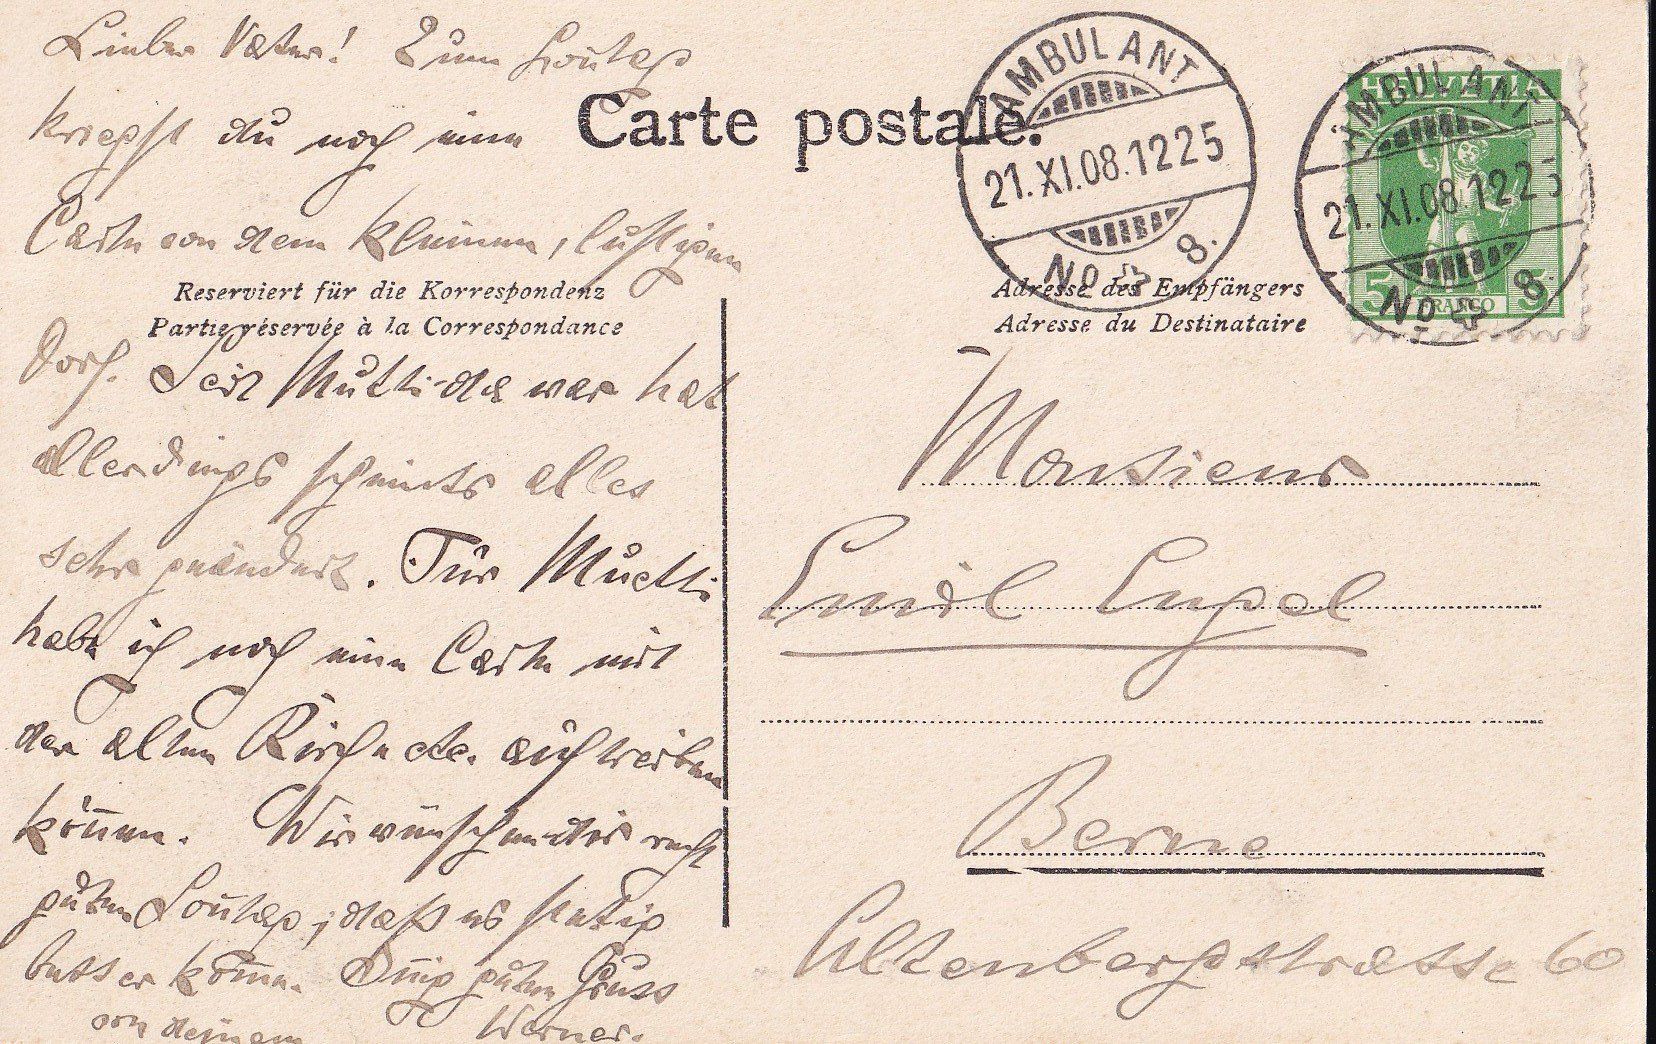 Lieber Vater! Zum Sontag
kriegst du noch eine
Carte von dem kleinen, lustigen
Dorf. Seit Mutti da war hat
allerdings scheints alles
sehr geändert. Für Muetti
habe ich noch eine Carte mit
der alten Kirche etc. auftreiben
können. Wir wünschen dir recht
guten Sontag, daß es stetig
besser komme. Innig guten Gruss
von deinem Werner.
Carte postale.
Reserviert für die Korrespondenz
Partie réservée à la Correspondance
Adresse des Empfängers
Adresse du Destinataire
AMBULANT
21.XI.08.1225
No 8.
HELVETIA
5 FRANCO 5
AMBULANT
21.XI.08.1225
No 8
Monsieur
Emil Engel
Berne
Altenbergstrasse 60